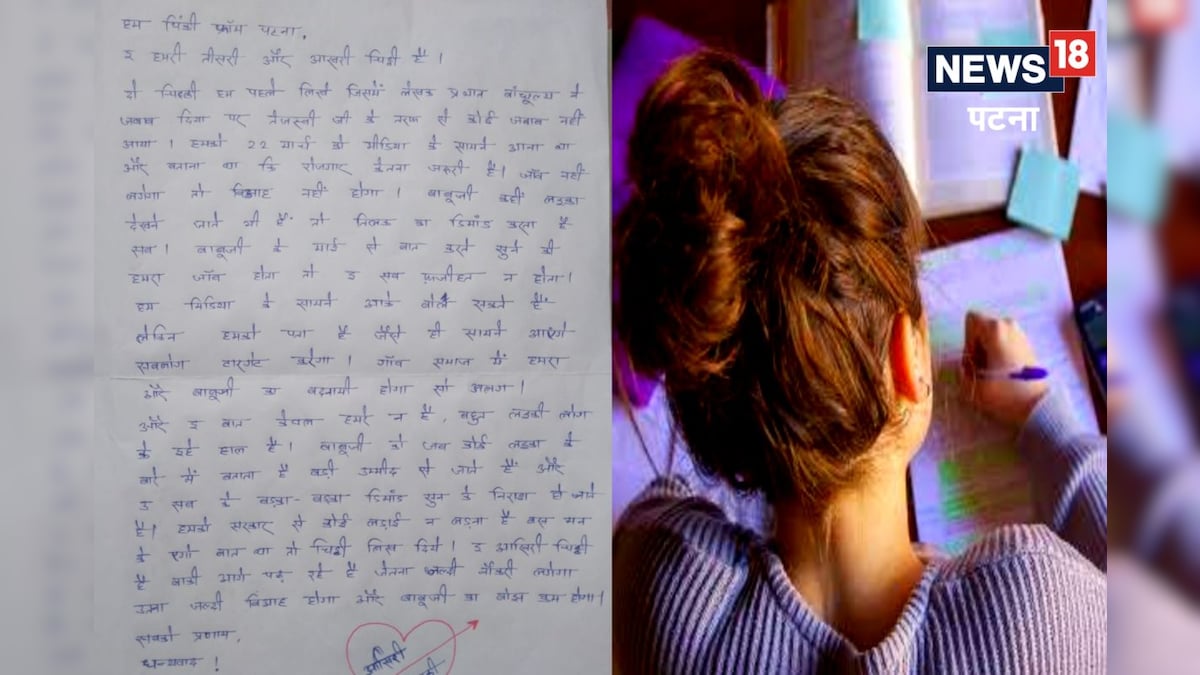 हम पिंकी फ्रॉम पटना,
इ हमरी तीसरी और आखरी चिट्ठी है।
दो चिट्ठी हम पहले लिखे जिसमें लेखक प्रभात बांधुल्य ने
जवाब दिया पर तेजस्वी जी के तरफ से कोई जवाब नहीं
आया। हमको 22 मार्च को मीडिया के सामने आना था
और बताना था कि रोजगार केतना जरूरी है। जॉब नहीं
लगेगा तो बिआह नहीं होगा। बाबूजी कहीं लड़का
देखने जाते भी हैं तो तिलक का डिमांड करता है
सब। बाबूजी के भाई से बात करते सुने की
हमरा जॉब होता तो इ सब फ़जीहत न होता।
हम मिडिया के सामने आके बोल सकते हैं
लेकिन हमको पता है जैसे ही सामने आएंगे
सबलोग टारगेट करेगा। गाँव समाज में हमरा
और बाबूजी का बदनामी होगा सो अलग।
और इ बात केवल हमरे न है, बहुत लड़की लोग
के इहे हाल है। बाबूजी को जब कोई लड़का के
बारे में बताता है बड़ी उम्मीद से जाते हैं और
उ सब के बड़का-बड़का डिमांड सुन के निराश हो जाते
है। हमको सरकार से कोई लड़ाई न लड़ना है बस मन
के एगो बात था तो चिट्ठी लिख दिये। इ आखिरी चिट्ठी
है बाकी आगे पढ़ रहे है जेतना जल्दी नौकरी लगेगा
उतना जल्दी बिआह होगा और बाबूजी का बोझ कम होगा।
सबको प्रणाम,
धन्यवाद!
आखिरी
NEWS 18
पटना